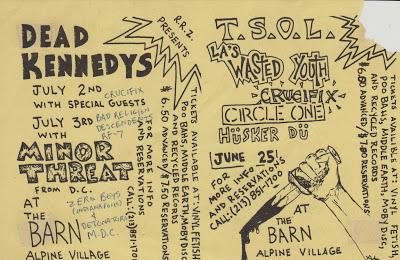 DEAD
KENNEDYS
R.R.Z.
PRESENTS
JULY 2ND CRUCIFIX
WITH SPECIAL GUESTS
JULY 3RD BAD RELIGION
DESCENDENTS
WITH RF-7
MINOR
THREAT
FROM D.C.
AT
THE
BARN
ALPINE VILLAGE
ZERO BOYS
(INDIANAPOLIS)
& DETONATORS
M.D.C.
FOR MORE INFO
AND RESERVATIONS
CALL: (213) 851-1700
$6.50 ADVANCE/$7.50 RESERVATIONS
AND RECYCLED RECORDS
POO BAHS, MIDDLE EARTH, MOBY DISC,
TICKETS AVAILABLE AT: VINYL FETISH,
T.S.O.L.
LA'S WASTED YOUTH
CRUCIFIX
CIRCLE ONE
HÜSKER DÜ
JUNE 25!
FOR
MORE INFO
AND RESERVATIONS
CALL: (213) 851-1700
AT
THE
BARN
ALPINE VILLAGE
$6.50 ADVANCED/$7.50 RESERVATIONS
AND RECYCLED RECORDS
POO BAHS, MIDDLE EARTH, MOBY DISC,
TICKETS AVAILABLE AT: VINYL FETISH,